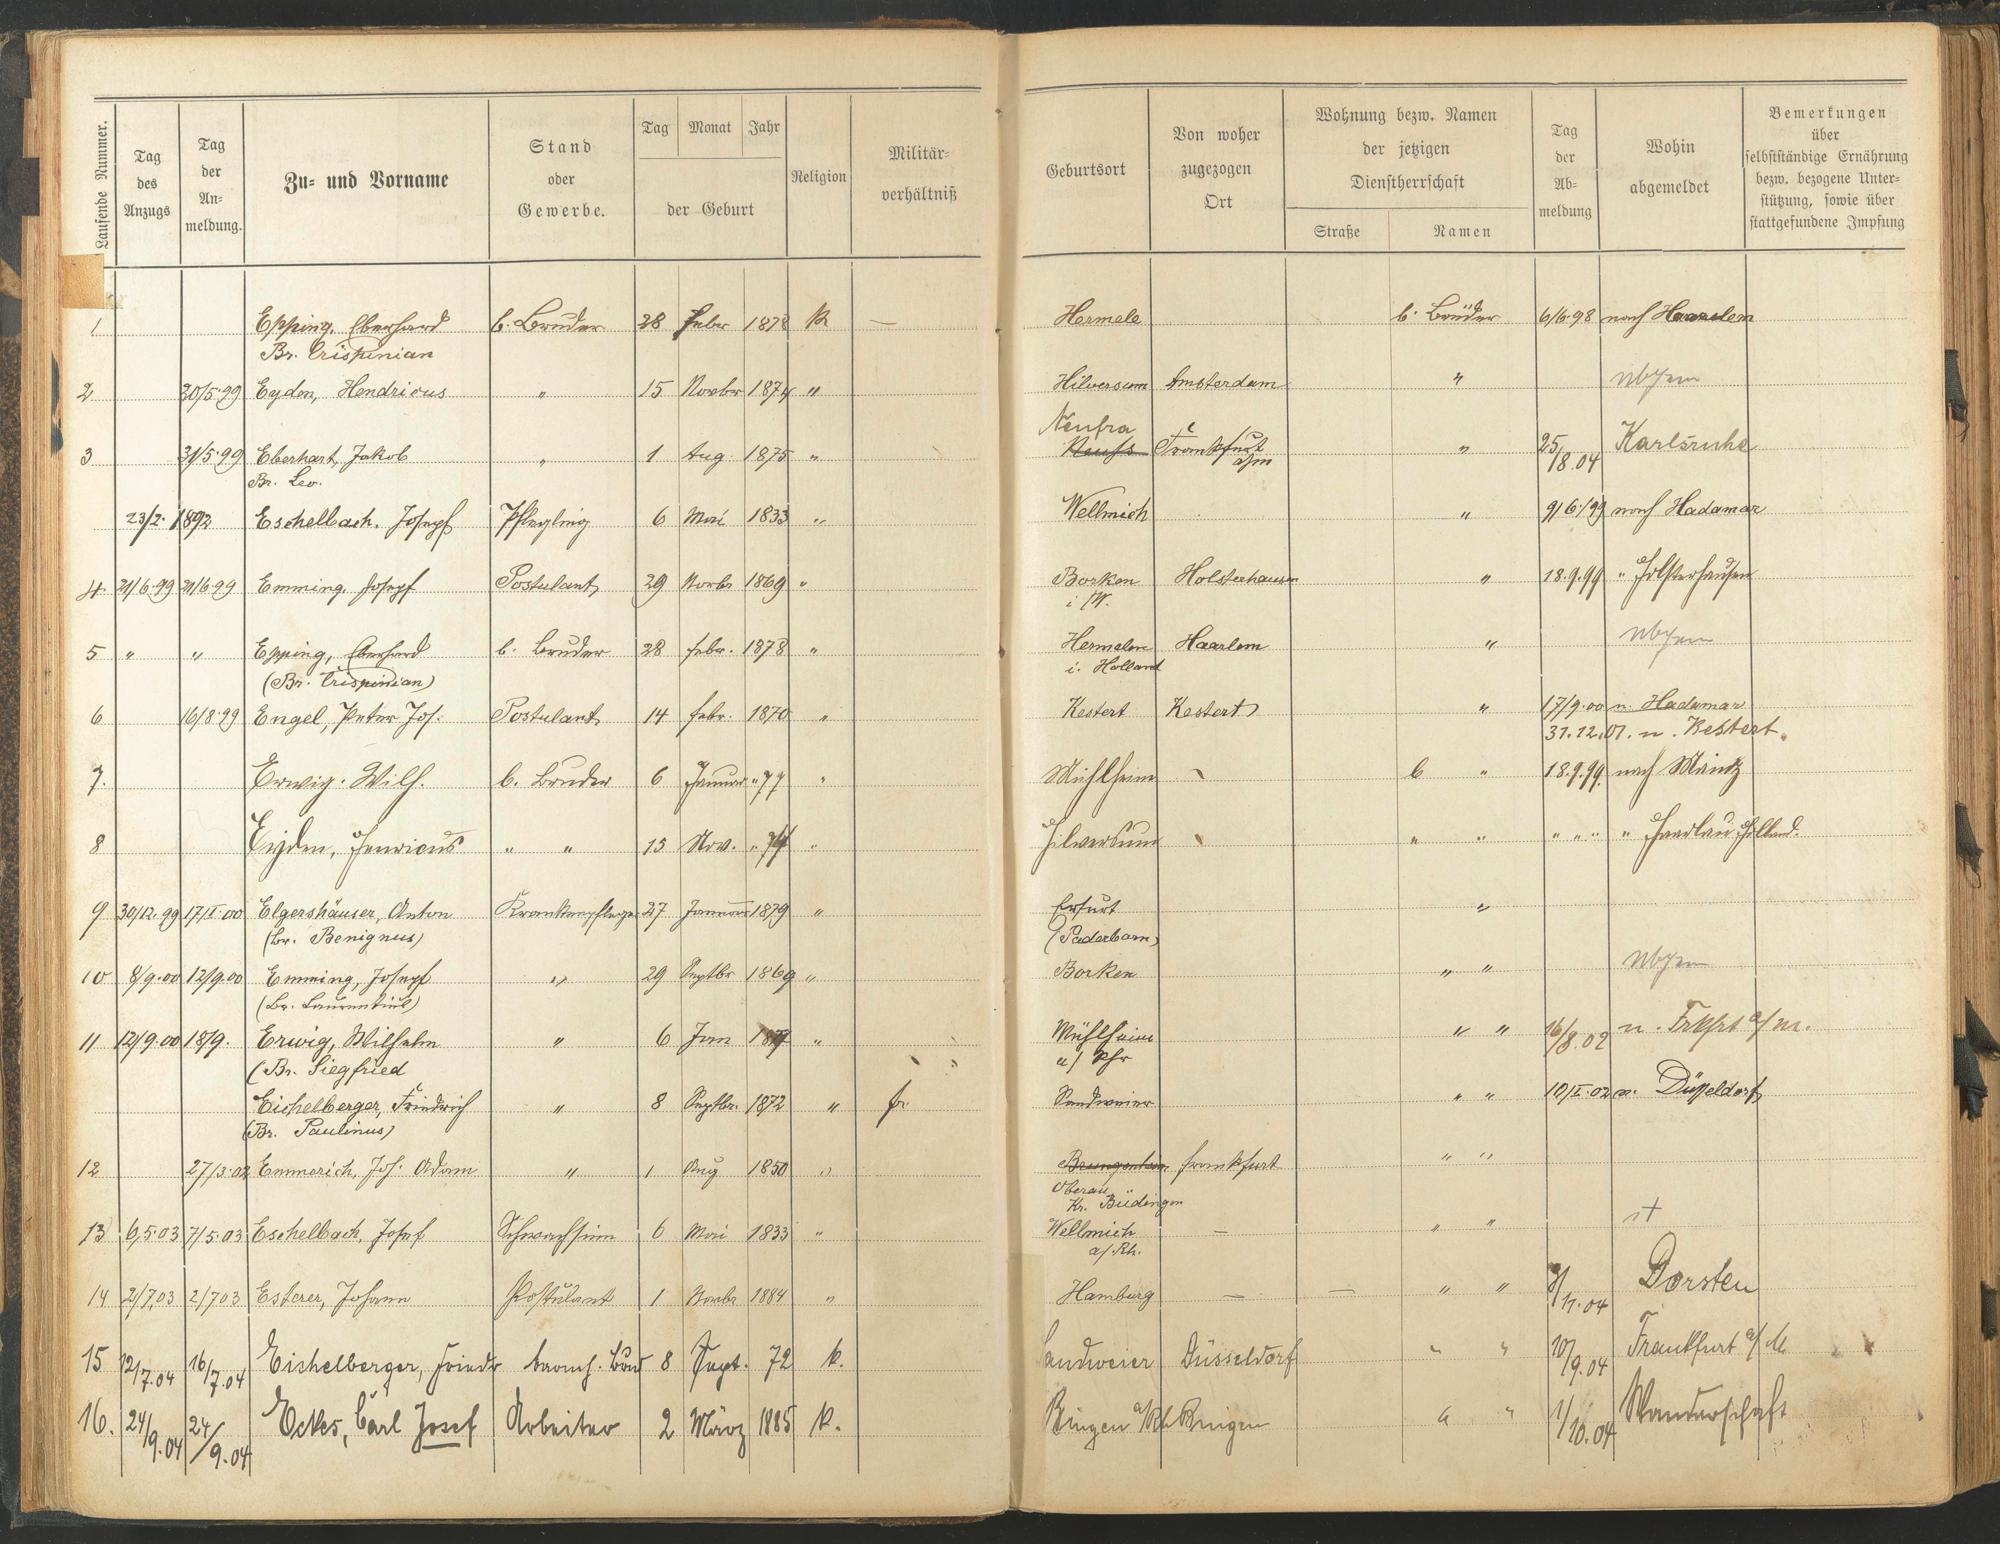 Laufende Nummer.
Tag des Anzugs
Tag der Anmeldung.
Zu- und Vorname
Stand oder Gewerbe.
Tag Monat Jahr
der Geburt
Religion
Militärverhältniß
Geburtsort
Von woher zugezogen Ort
Wohnung bezw. Namen der jetzigen Dienstherrschaft
Straße Namen
Tag der Abmeldung
Wohin abgemeldet
Bemerkungen über selbstständige Ernährung bezw. bezogene Unterstützung, sowie über stattgefundene Impfung
1 Epping, Eberhard b. Bruder 28 Febr 1878 k — Hermele b. Brüder 6/6 98 nach Haarlem
Br. Crispinian
2 30/5.99 Eyden, Hendricus " 15 Novbr 1874 " Hilversum Amsterdam "
Neufra
3 31/5.99 Eberhart, Jakob " 1 Aug 1875 " Neufs Frankfurt a/m " 25/8.04 Karlsruhe
Br. Leo.
23/2. 1892 Eschelbach. Josef Pflegling 6 Mai 1833 " Wellmich " 9/6/99 nach Hadamar
4 21/6.99 21/6 99 Emming, Josef Postulant 29 Novbr 1869 " Borken Holsterhausen " 18.9.99 " Holsterhausen
i/W.
5 " " Epping, Eberhard b. Bruder 28 Febr. 1878 " Hermelen Haarlem "
(Br. Crispinian) i. Holland
6 16/8.99 Engel, Peter Jos. Postulant 14 Febr. 1870 " Kestert Kestert " 17/9.00 n. Hadamar
31.12.01. n. Kestert.
7. Erwig. Wilh. b. Bruder 6 Januar " 77 " Mühlheim b " 18.9.99. nach Mainz
8 Eyden, Henricus " " 15 Nov. " 74 " Hilversum " " " " " " Holland.
9 30/12.99 17/I.00 Elgershäuser, Anton Krankenpfleger 27 Januar 1879 " Erfurt "
(Br. Benignus) (Paderborn)
10 8/9.00 12/9.00 Emming, Josef " 29 Septbr 1869 " Borken " "
(Br. Laurentius)
11 12/9.00 18/9. Erwig, Wilhelm " 6 Jan " Mühlheim " " 16/8.02 n. Frkfrt a/m.
(Br. Siegfried a/ Rhr
Eichelberger, Friedrich " 8 Septbr. 1872 " Sandweier " " 10/I.02 n. Düsseldorf
(Br. Paulinus)
12 27/3.02 Emmerich, Jos. Adam " 1 Aug 1850 " Frankfurt " "
Oberau
Kr. Büdingen
13 6/5.03 7/5.03 Eschelbach, Josef Schwachsinn 6 Mai 1833 " Wellmich — " "
a/. Rh.
14 2/7.03 2/7 03 Esterer, Johann Postulant 1 Novbr 1884 " Hamburg — — " " /11.04 Dorsten
15 12/7.04 16/7.04 Eichelberger, Friedr barmh. Brud 8 Sept. 72 k. Sandweier Düsseldorf " " 10/9.04 Frankfurt a/M
16. 24/9.04 24/9.04 Eckes, Carl Josef Arbeiter 2 März 1885 k. Bingen a/Rh Bingen " " 1/10.04 Wanderschaft